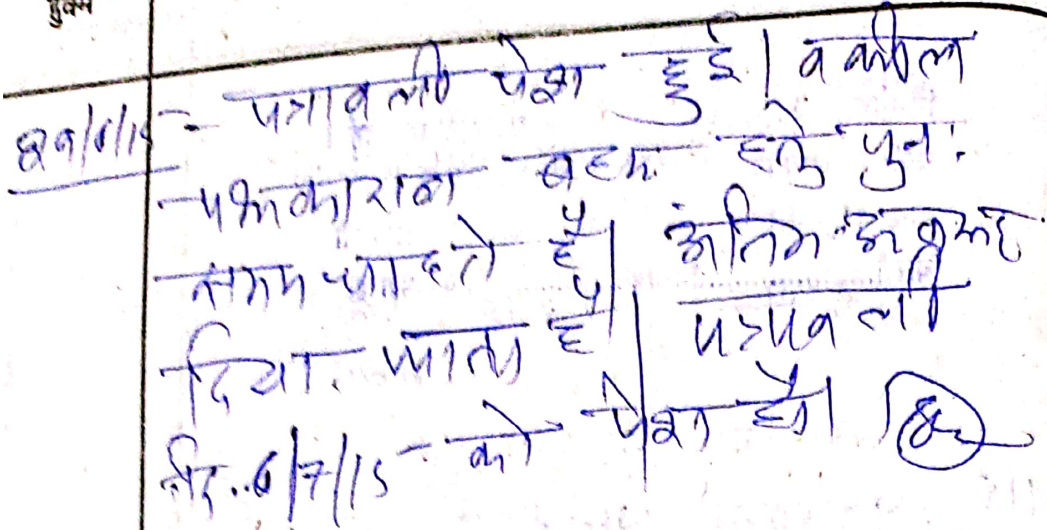 हुक्म
पत्रावली पेश हुई। वकील
पक्षकारान बहस हेतु पुनः
समय चाहते है। अंतिम अवसर
दिया जाता है। पत्रावली
दि. 6/7/15 को पेश हो।